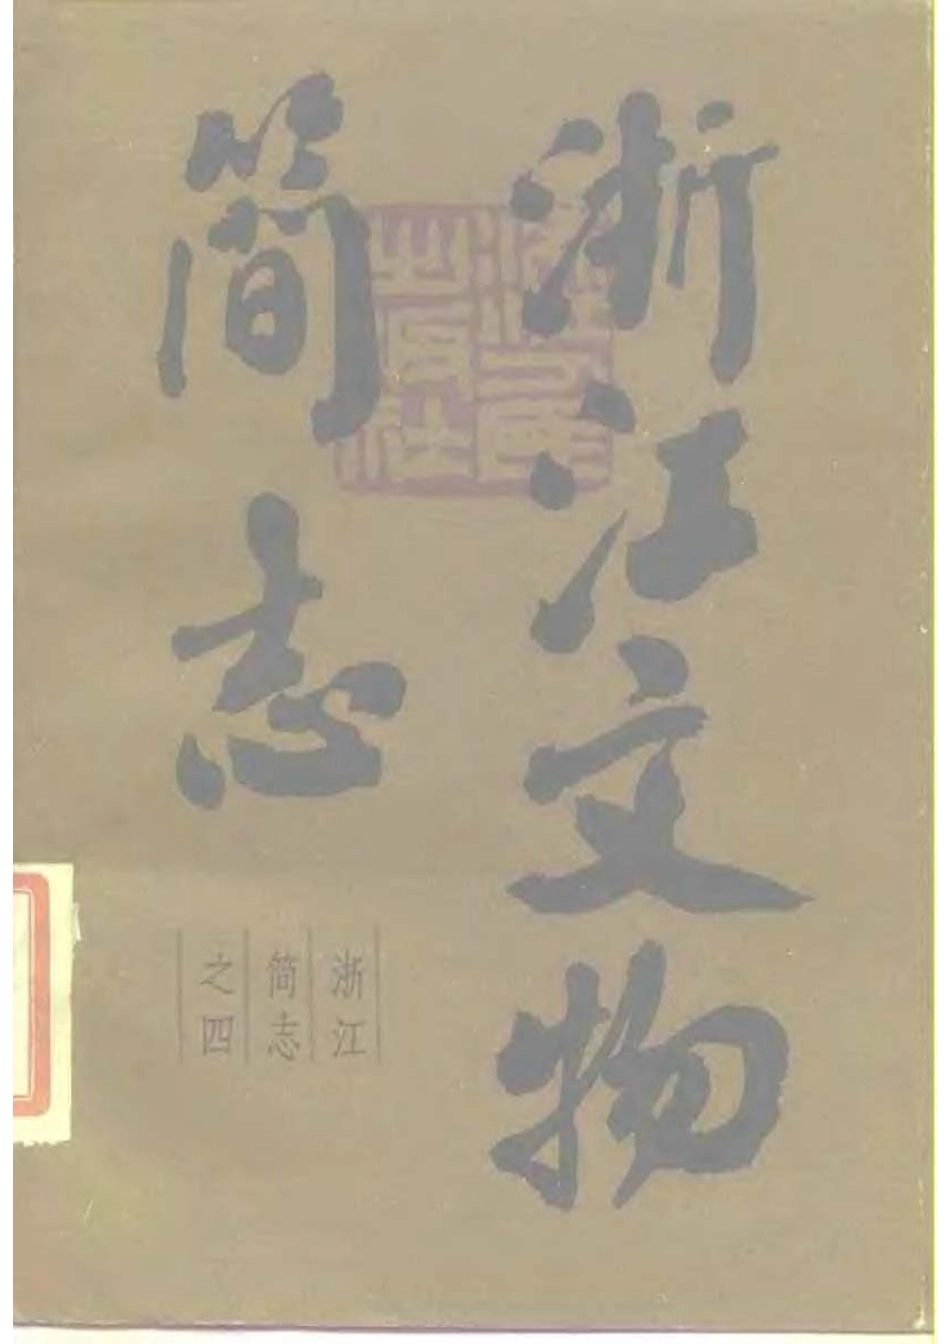 浙江文物
简志
浙江
简志
之四